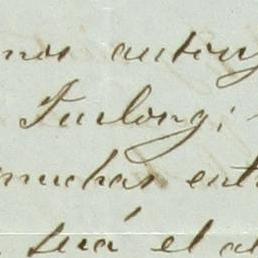 mos autory
Furlong;
muchas ent
será el al